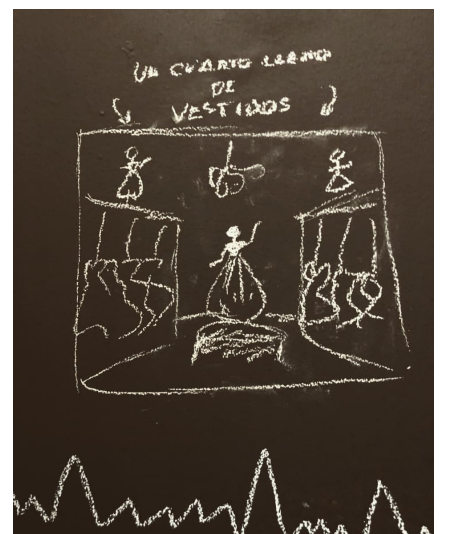 UN CUARTO LLENO
DE
VESTIDOS